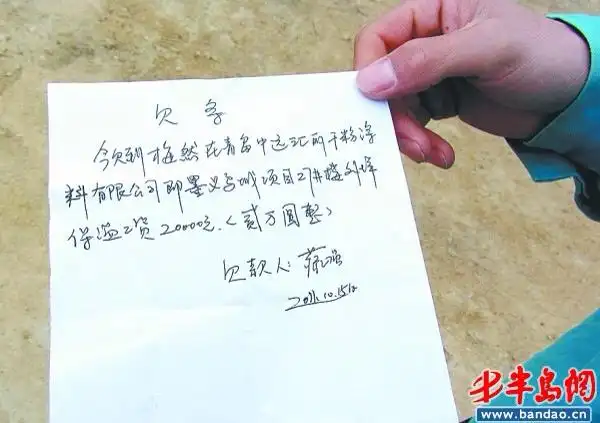 欠条
今欠到 在青岛中远汇丽干粉涂
料有限公司即墨义乌城项目27#楼外墙
保温工资20000元.(贰万圆整)
欠款人:
2011.10.15日
半岛网
www.bandao.cn